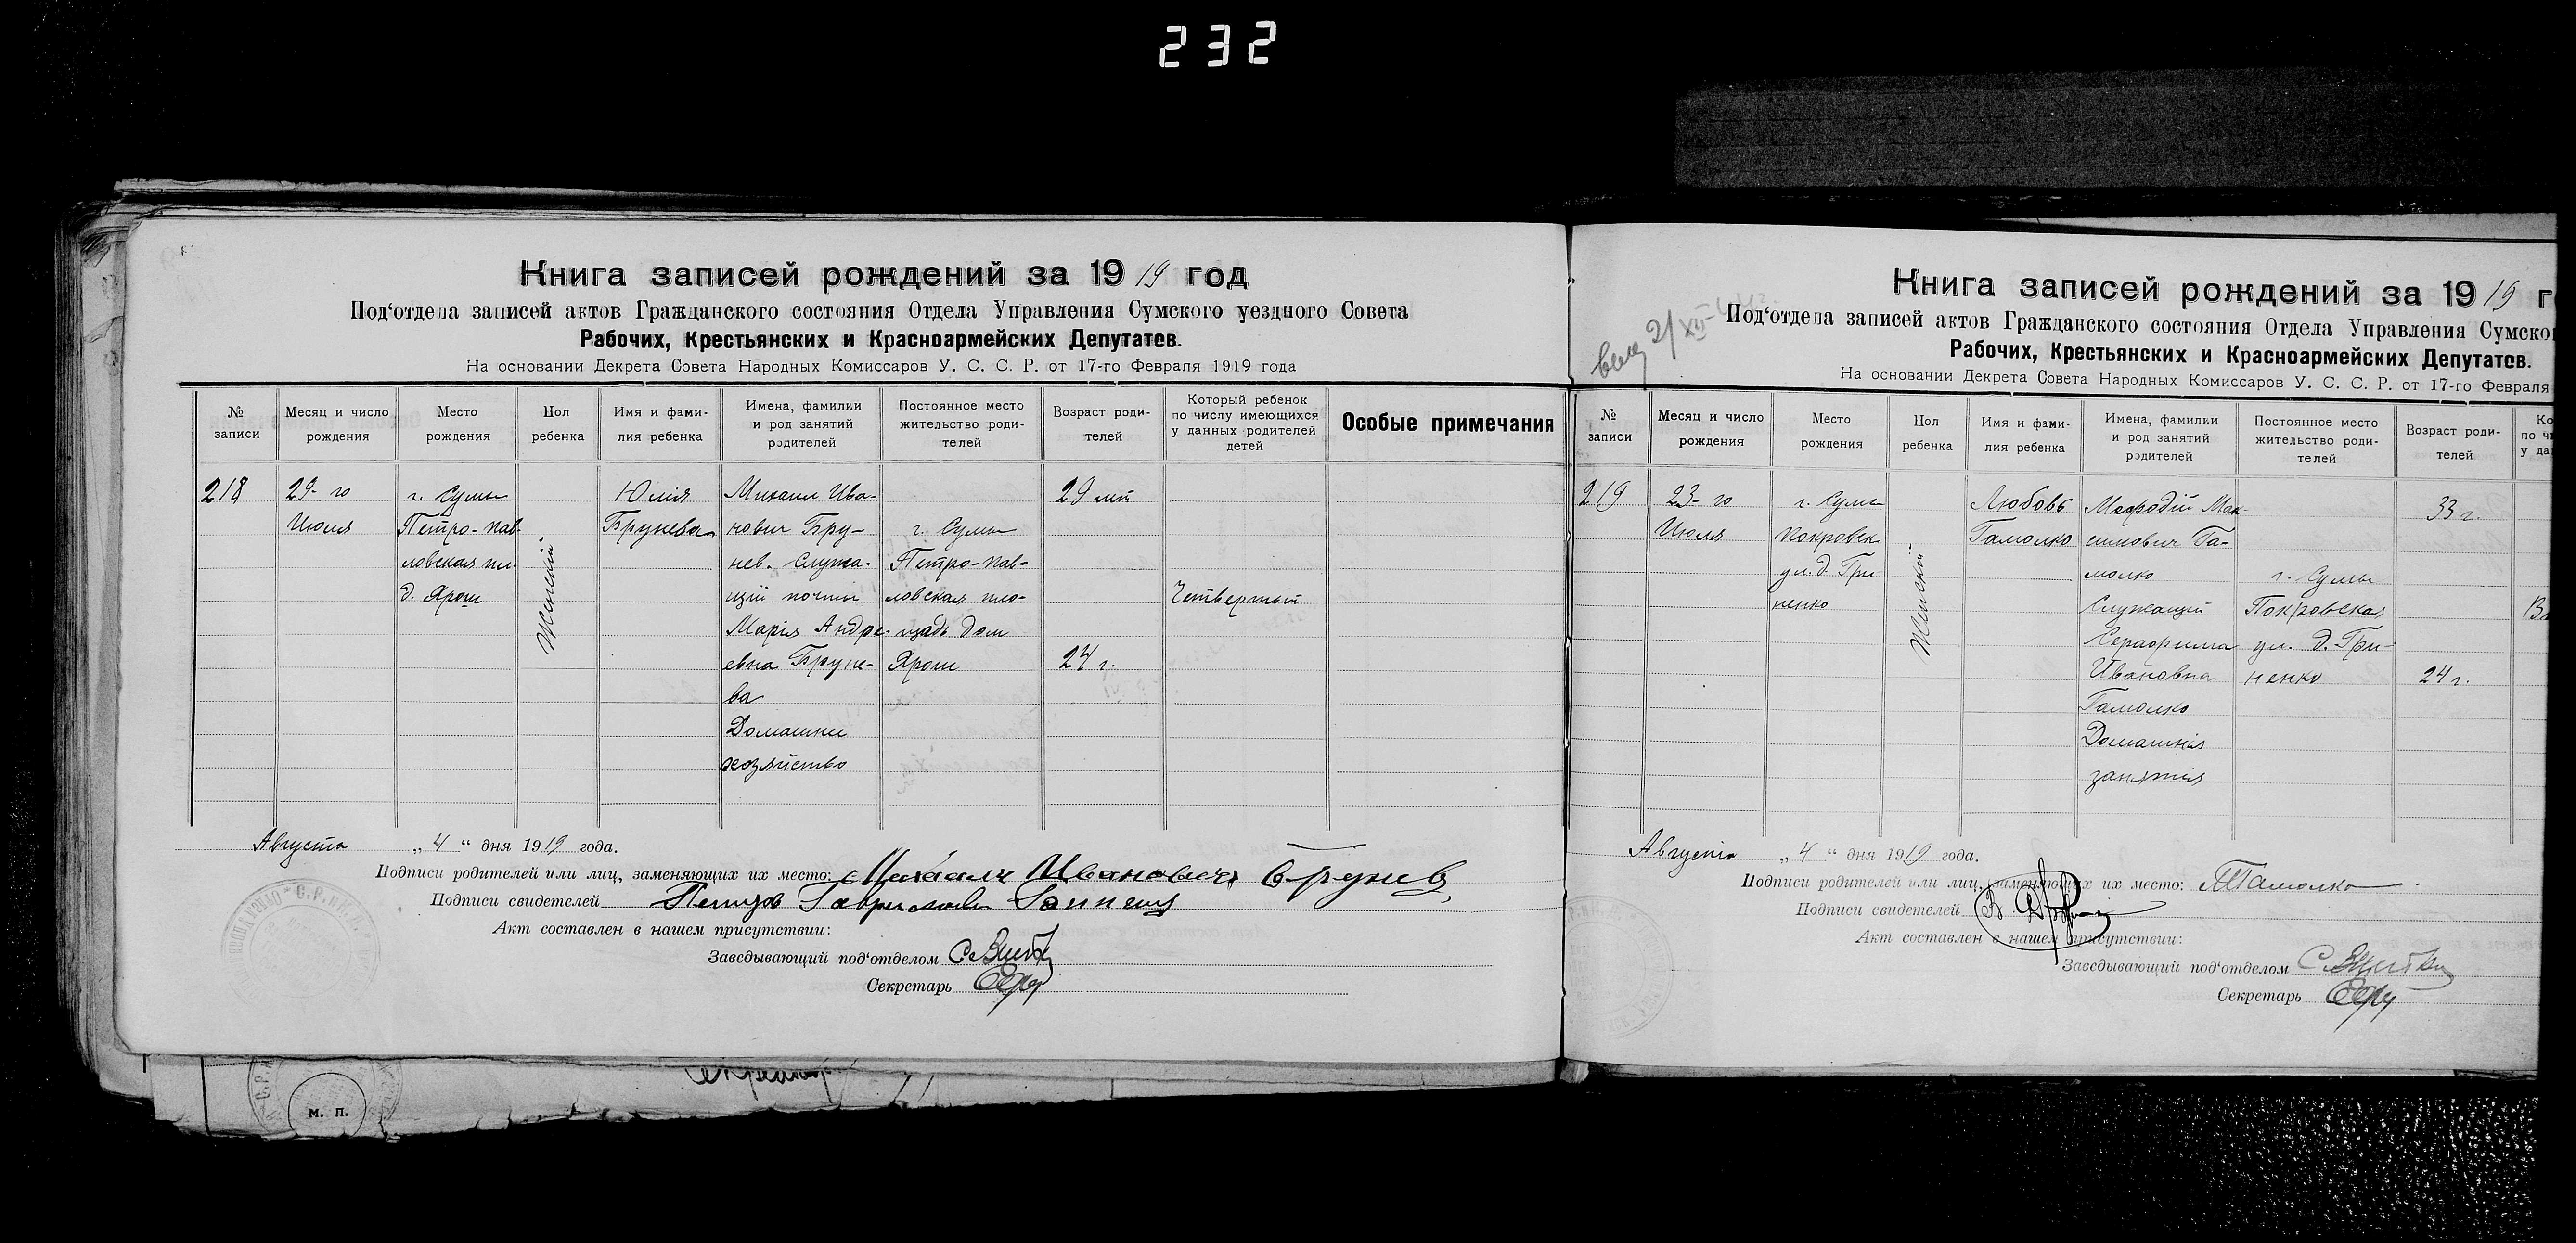 232
Книга записей рождений за 1919 год
Под‘отдела записей актов Гражданского состояния Отдела Управления Сумского уездного Совета
Рабочих, Крестьянских и Красноармейских Депутатов.
На основании Декрета Совета Народных Комиссаров У. С. С. Р. от 17-го Февраля 1919 года
№ записи
Месяц и число рождения
Место рождения
Пол ребенка
Имя и фами-
лия ребенка
Имена, фамилии
и род занятий
родителей
Постоянное место
жительство роди-
телей
Возраст роди-
телей
Который ребенок
по числу имеющихся
у данных родителей
детей
Особые примечания
218
29-го
Июля
г. Сумы
Петро-пав-
ловская пл.
д. Ярош
Женский
Юлія
Брунева
Михаил Ива-
нович Бру-
нев. Служа-
щій почты
Марія Андре-
евна Бруне-
ва
Домашнее
хозяйство
г. Сумы
Петро-пав-
ловская пло-
щадь дом
Ярош
29 лет
24 г.
Четвертый
Августа „4“ дня 1919 года.
Подписи родителей или лиц, заменяющих их место: Михаил Иванович Брунев
Подписи свидетелей
Акт составлен в нашем присутствии:
Заведывающий под‘отделом
Секретарь
М. П.
Книга записей рождений за 1919 г
Под‘отдела записей актов Гражданского состояния Отдела Управления Сумско
Рабочих, Крестьянских и Красноармейских Депутатов.
На основании Декрета Совета Народных Комиссаров У. С. С. Р. от 17-го Февраля
№ записи
Месяц и число рождения
Место рождения
Пол ребенка
Имя и фами-
лия ребенка
Имена, фамилии
и род занятий
родителей
Постоянное место
жительство роди-
телей
Возраст роди-
телей
Ко
по чи
у да
219
23-го
Июля
г. Сумы
Покровск.
ул. д. Гри
ненко
Женский
Любовь
Гамолко
Мефодій Мак-
симович Га-
молко
Служащій
Серафима
Ивановна
Гамолко
Домашнія
занятія
г. Сумы
Покровская
ул. д. Гри-
ненко
33 г.
24 г.
Августа „4“ дня 1919 года.
Подписи родителей или лиц, заменяющих их место: МГамолко
Подписи свидетелей
Акт составлен в нашем присутствии:
Заведывающий под‘отделом
Секретарь